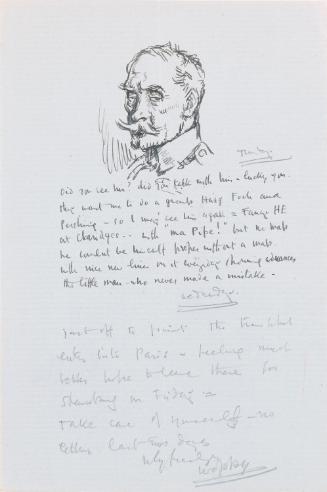 Did you see him? did you talk with him - lucky you.
they want me to do a group Haig Foch and
Pershing - so I may see him again - Fancy HE
at Claridges - with "ma Pipe!" but no maps
he couldnt be himself proper without a map.
with nice new lines on it everyday showing advances
the little man who never made a mistake -
Wednesday.
Just off to paint the
into Paris - feeling much
better hope to leave there for
on Friday
take care of yourself - no
letters last two days